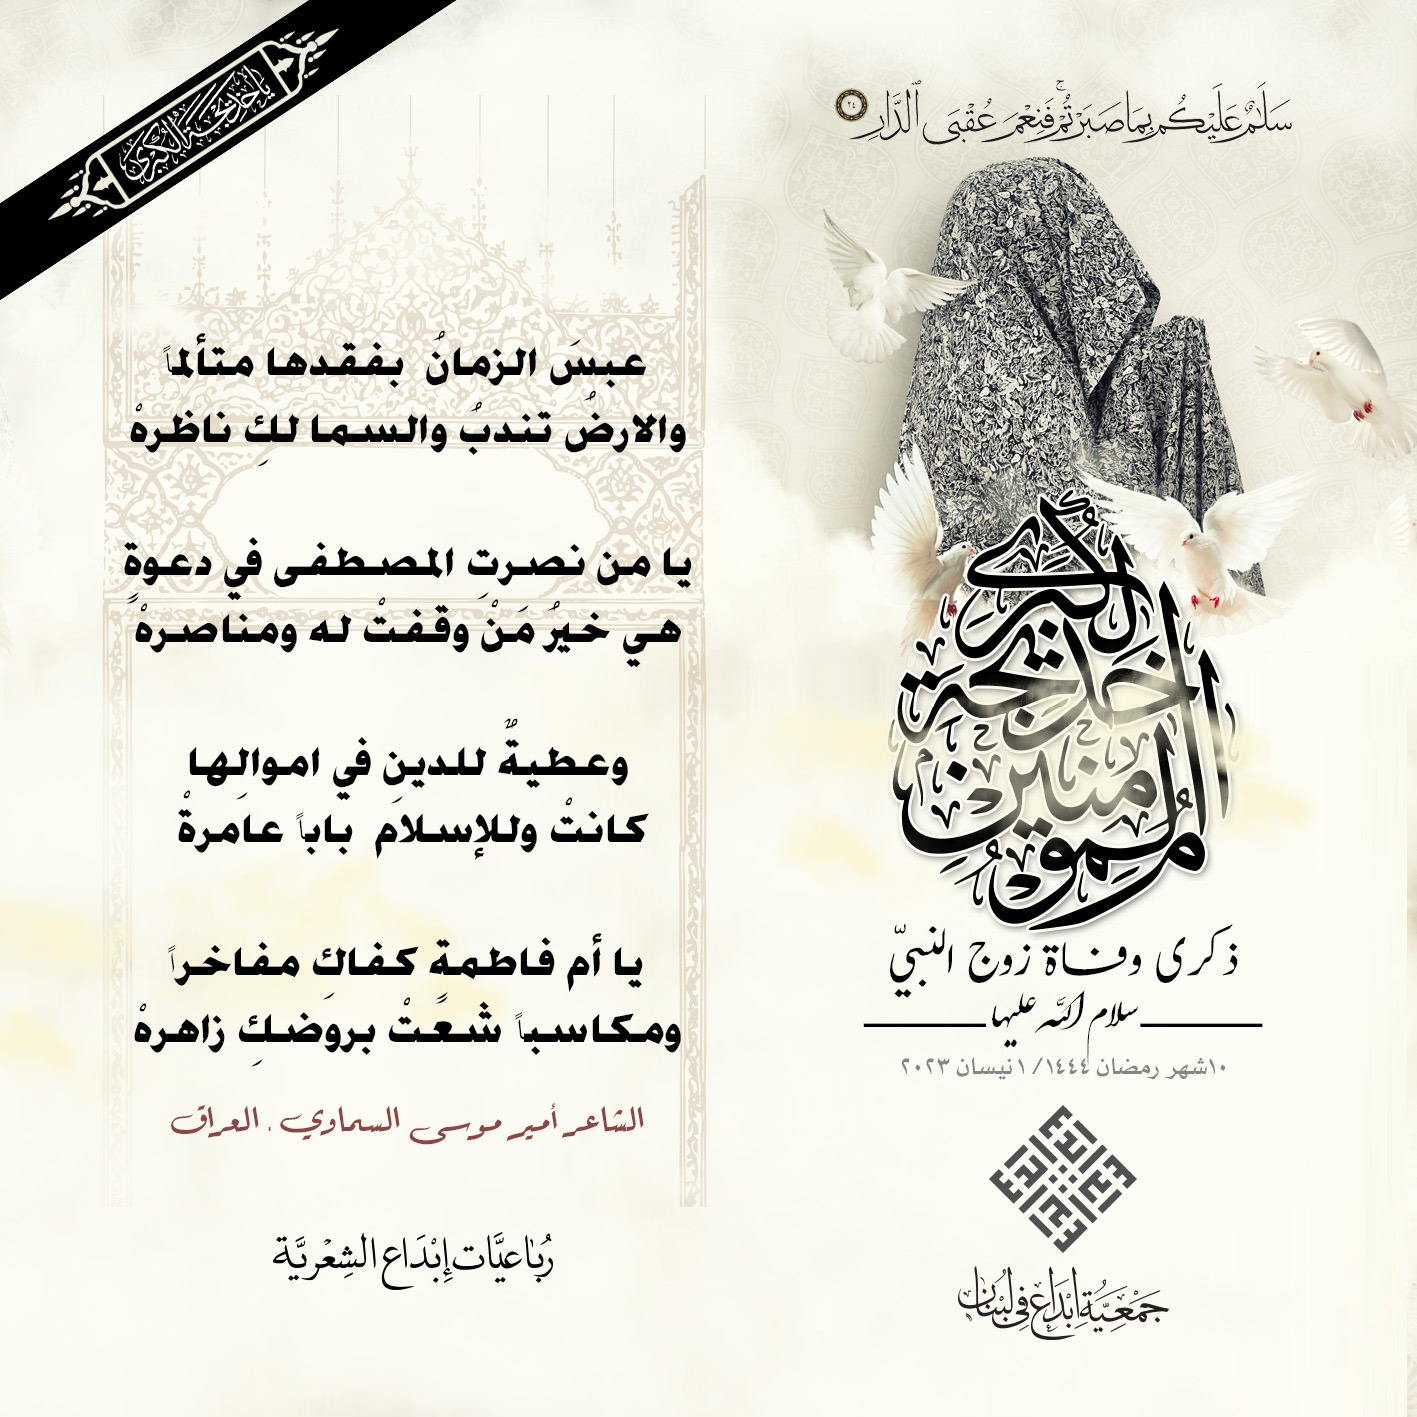 يا خديجة الكبرى
سَلَامٌ عَلَيْكُم بِمَا صَبَرْتُمْ ۚ فَنِعْمَ عُقْبَى ٱلدَّارِ ٢٤
عبسَ الزمانُ بفقدها متألماً
والارضُ تندبُ والسما لكِ ناظرهْ
يا من نصرتِ المصطفى في دعوةٍ
هي خيرُ مَنْ وقفتْ له ومناصرهْ
وعطيةٌ للدينِ في اموالِها
كانتْ وللإسلام باباً عامرةْ
يا أم فاطمةٍ كفاكِ مفاخراً
ومكاسباً شعتْ بروضكِ زاهرهْ
الشاعر أمير موسى السماوي . العراق
رُبَاعيَّات إِبْدَاع الشِعْريَّة
الكبرى
خديجة
أم المؤمنين
ذكرى وفاة زوج النبيّ
سلام الله عليها
١٠شهر رمضان ١٤٤٤/ ١نيسان ٢٠٢٣
جَمْعِيَّةُ إِبْدَاع في لبْنَان